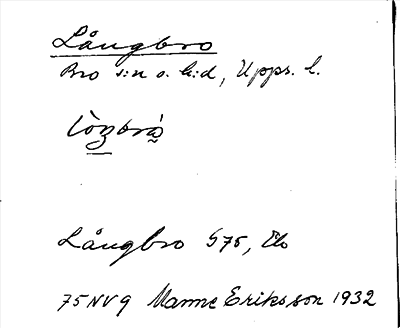 Långbro
Bro s:n o. h:d, Upps. l.
Långbro S75, Ek
75 NV 9 Manne Eriksson 1932